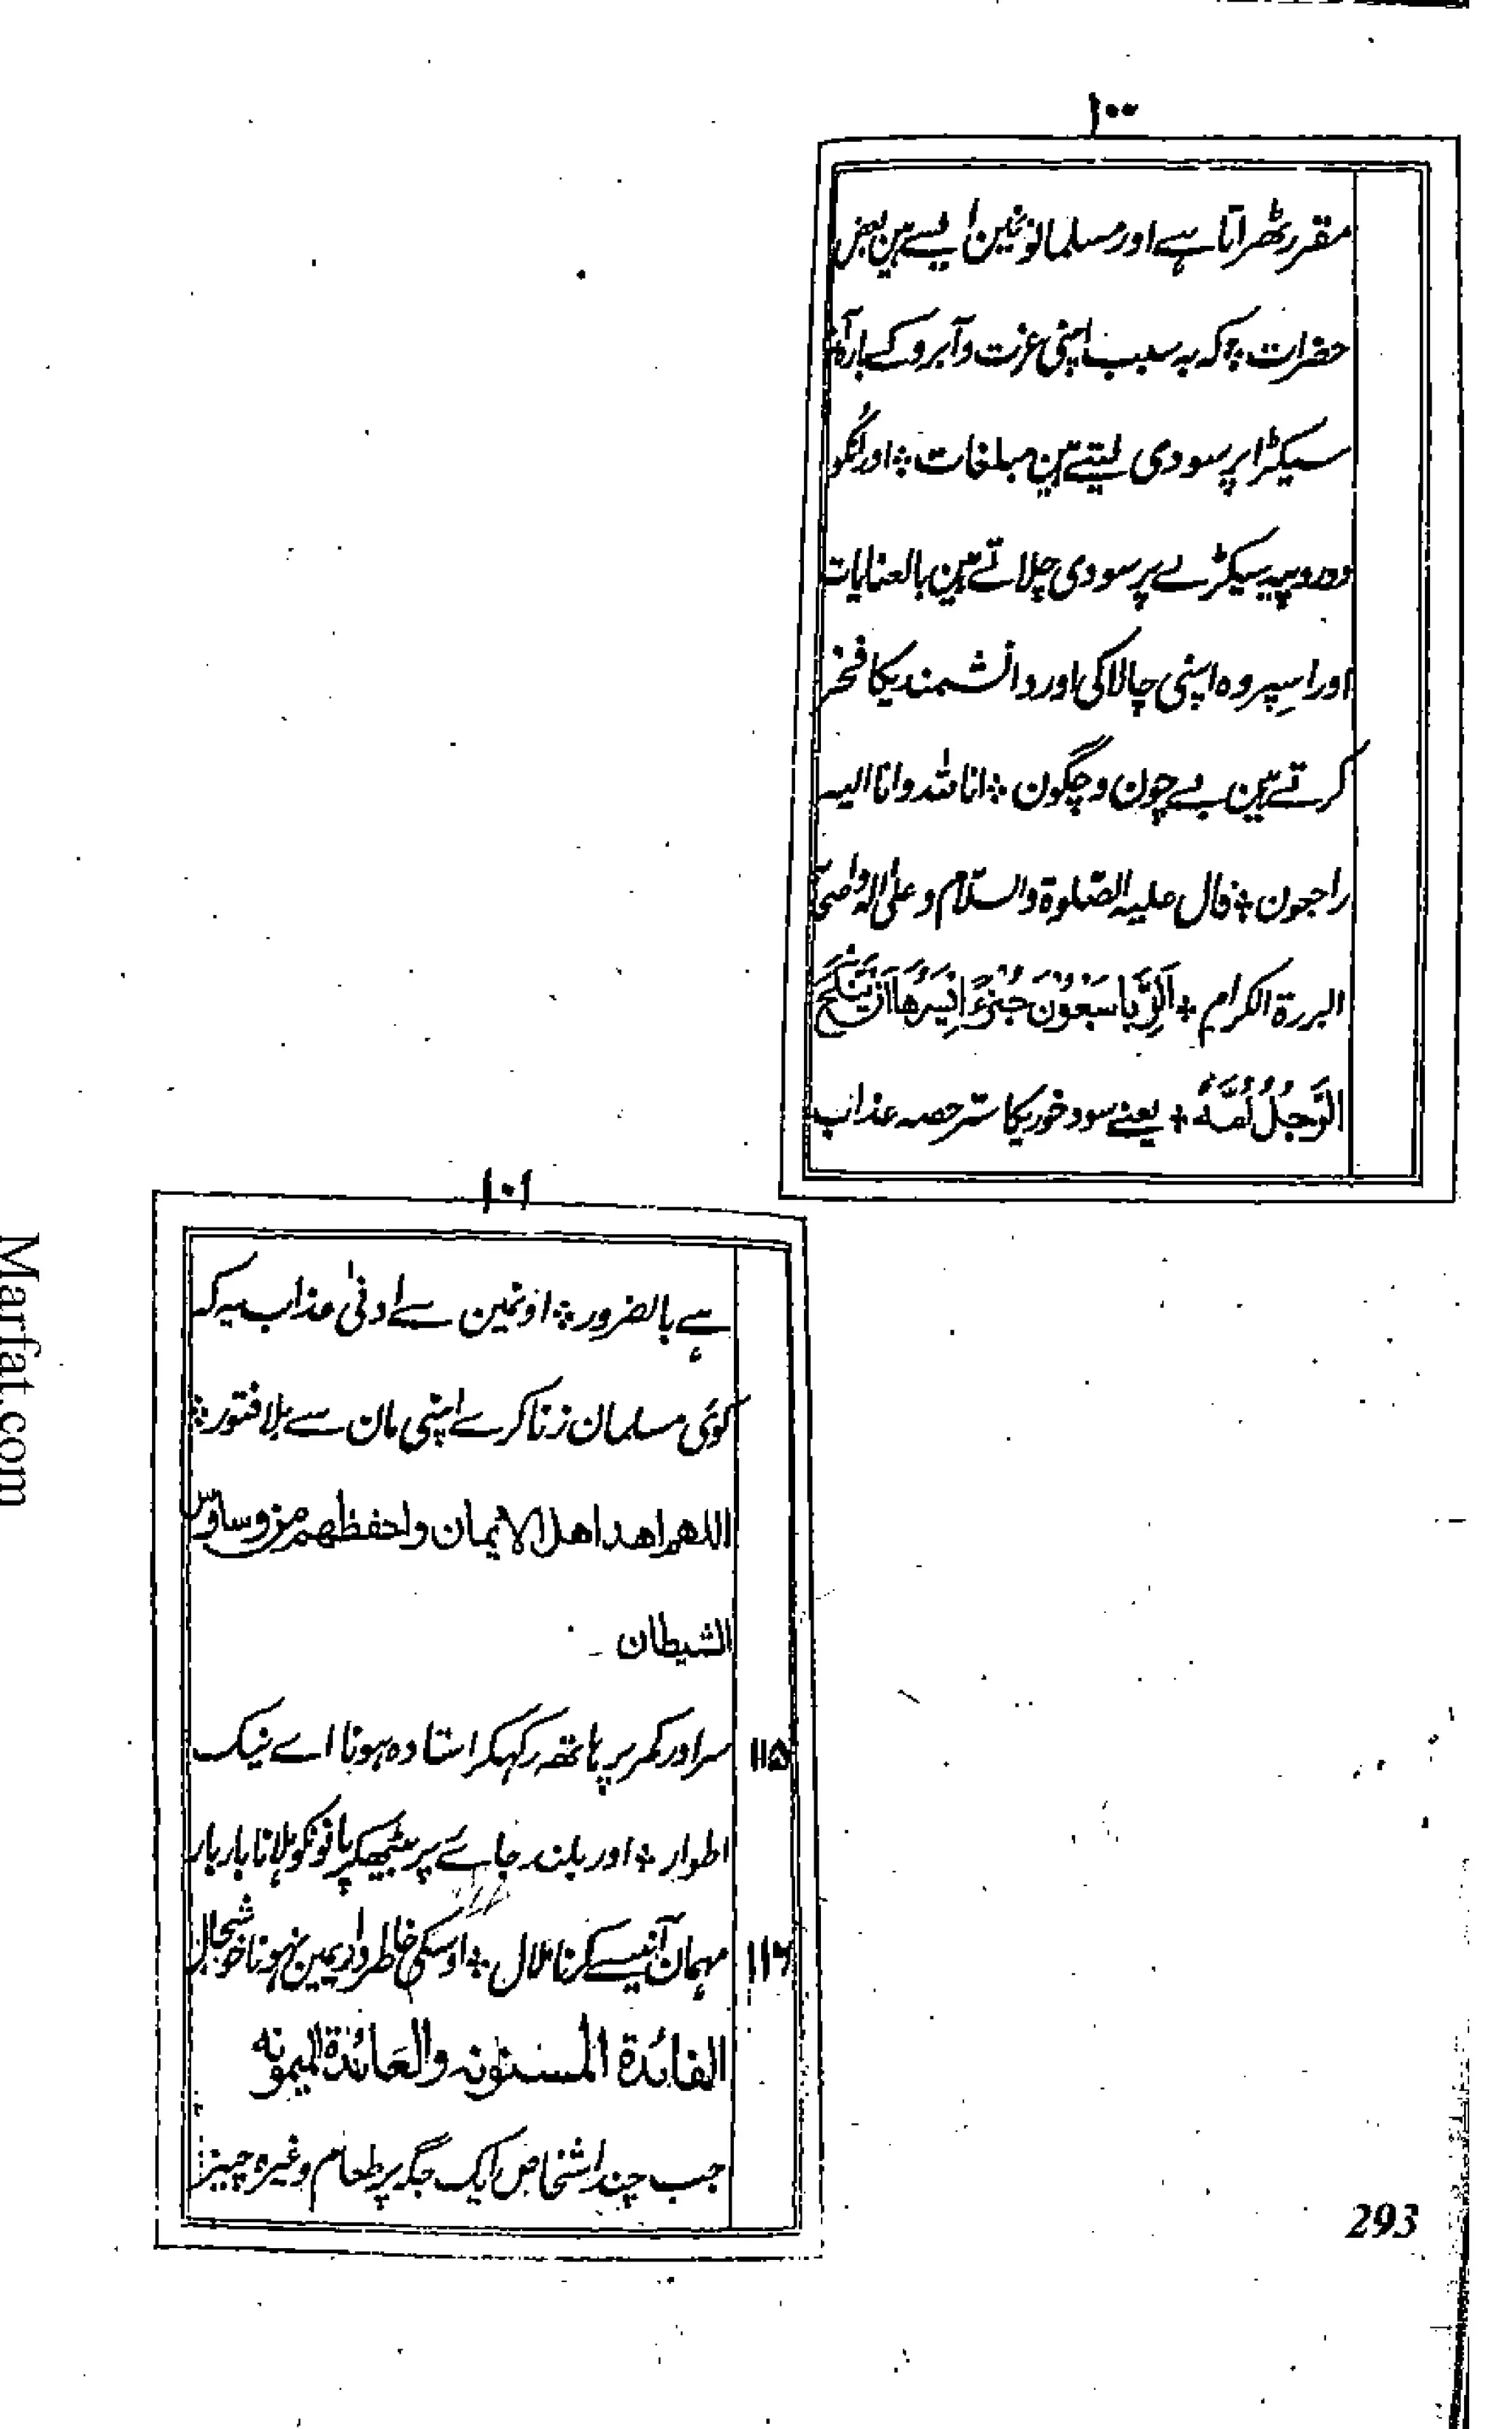 ۱۰۰
مقرر ٹھراتا ہے اور مسلمانونمین ایسے ہین بعض
حضرات ؞ کہ بہ سبب اپنی عزت و آبرو کے بارہ آنہ
سیکڑا پر سودی لیتے ہین مبلغات ؞ اور لنگو
دو روپیہ سیکڑے پر سودی چلاتے ہین بالعنایات
اور اسپر وہ اپنی چالاکی اور دانشمندیکا فخر
کرتے ہین بے چون و چگون ؞ انا للہ وانا الیہ
راجعون ؞ قال علیہ الصلوۃ والسلام و علی الہ واصحابہ
البررۃ الکرام + اَلرِّبَا سَبْعُوْنَ جُزْءً اَیْسَرُهَا اَنْ یَّنْکِحَ
الرَّجُلُ اُمَّهٗ + یعنے سود خوریکا ستر حصہ عذاب
۱۰۱
ہے بالضرور ؞ اونمین سے ادنیٰ عذاب یہ کہ
کوئی مسلمان زنا کرے اپنی مان سے بلا فتور ؞
اللهم اهد اهل الایمان واحفظهم من وساوس
الشیطان
۱۱۵ سر اور کمر پر ہاتھ رکہکر استادہ ہونا اے نیک
اطوار ؞ اور بلند جائے پر بیٹھکر پانونکو ہلانا بار بار
۱۱۶ مہمان آنیسے کرنا ملال ؞ اوسکی خاطرداریمین نہونا خوشحال
الفائدۃ المسنونه والعائدۃ المیمونه
جب چند اشخاص ایک جگہ پر طعام وغیرہ چیز
293
Marfat.com